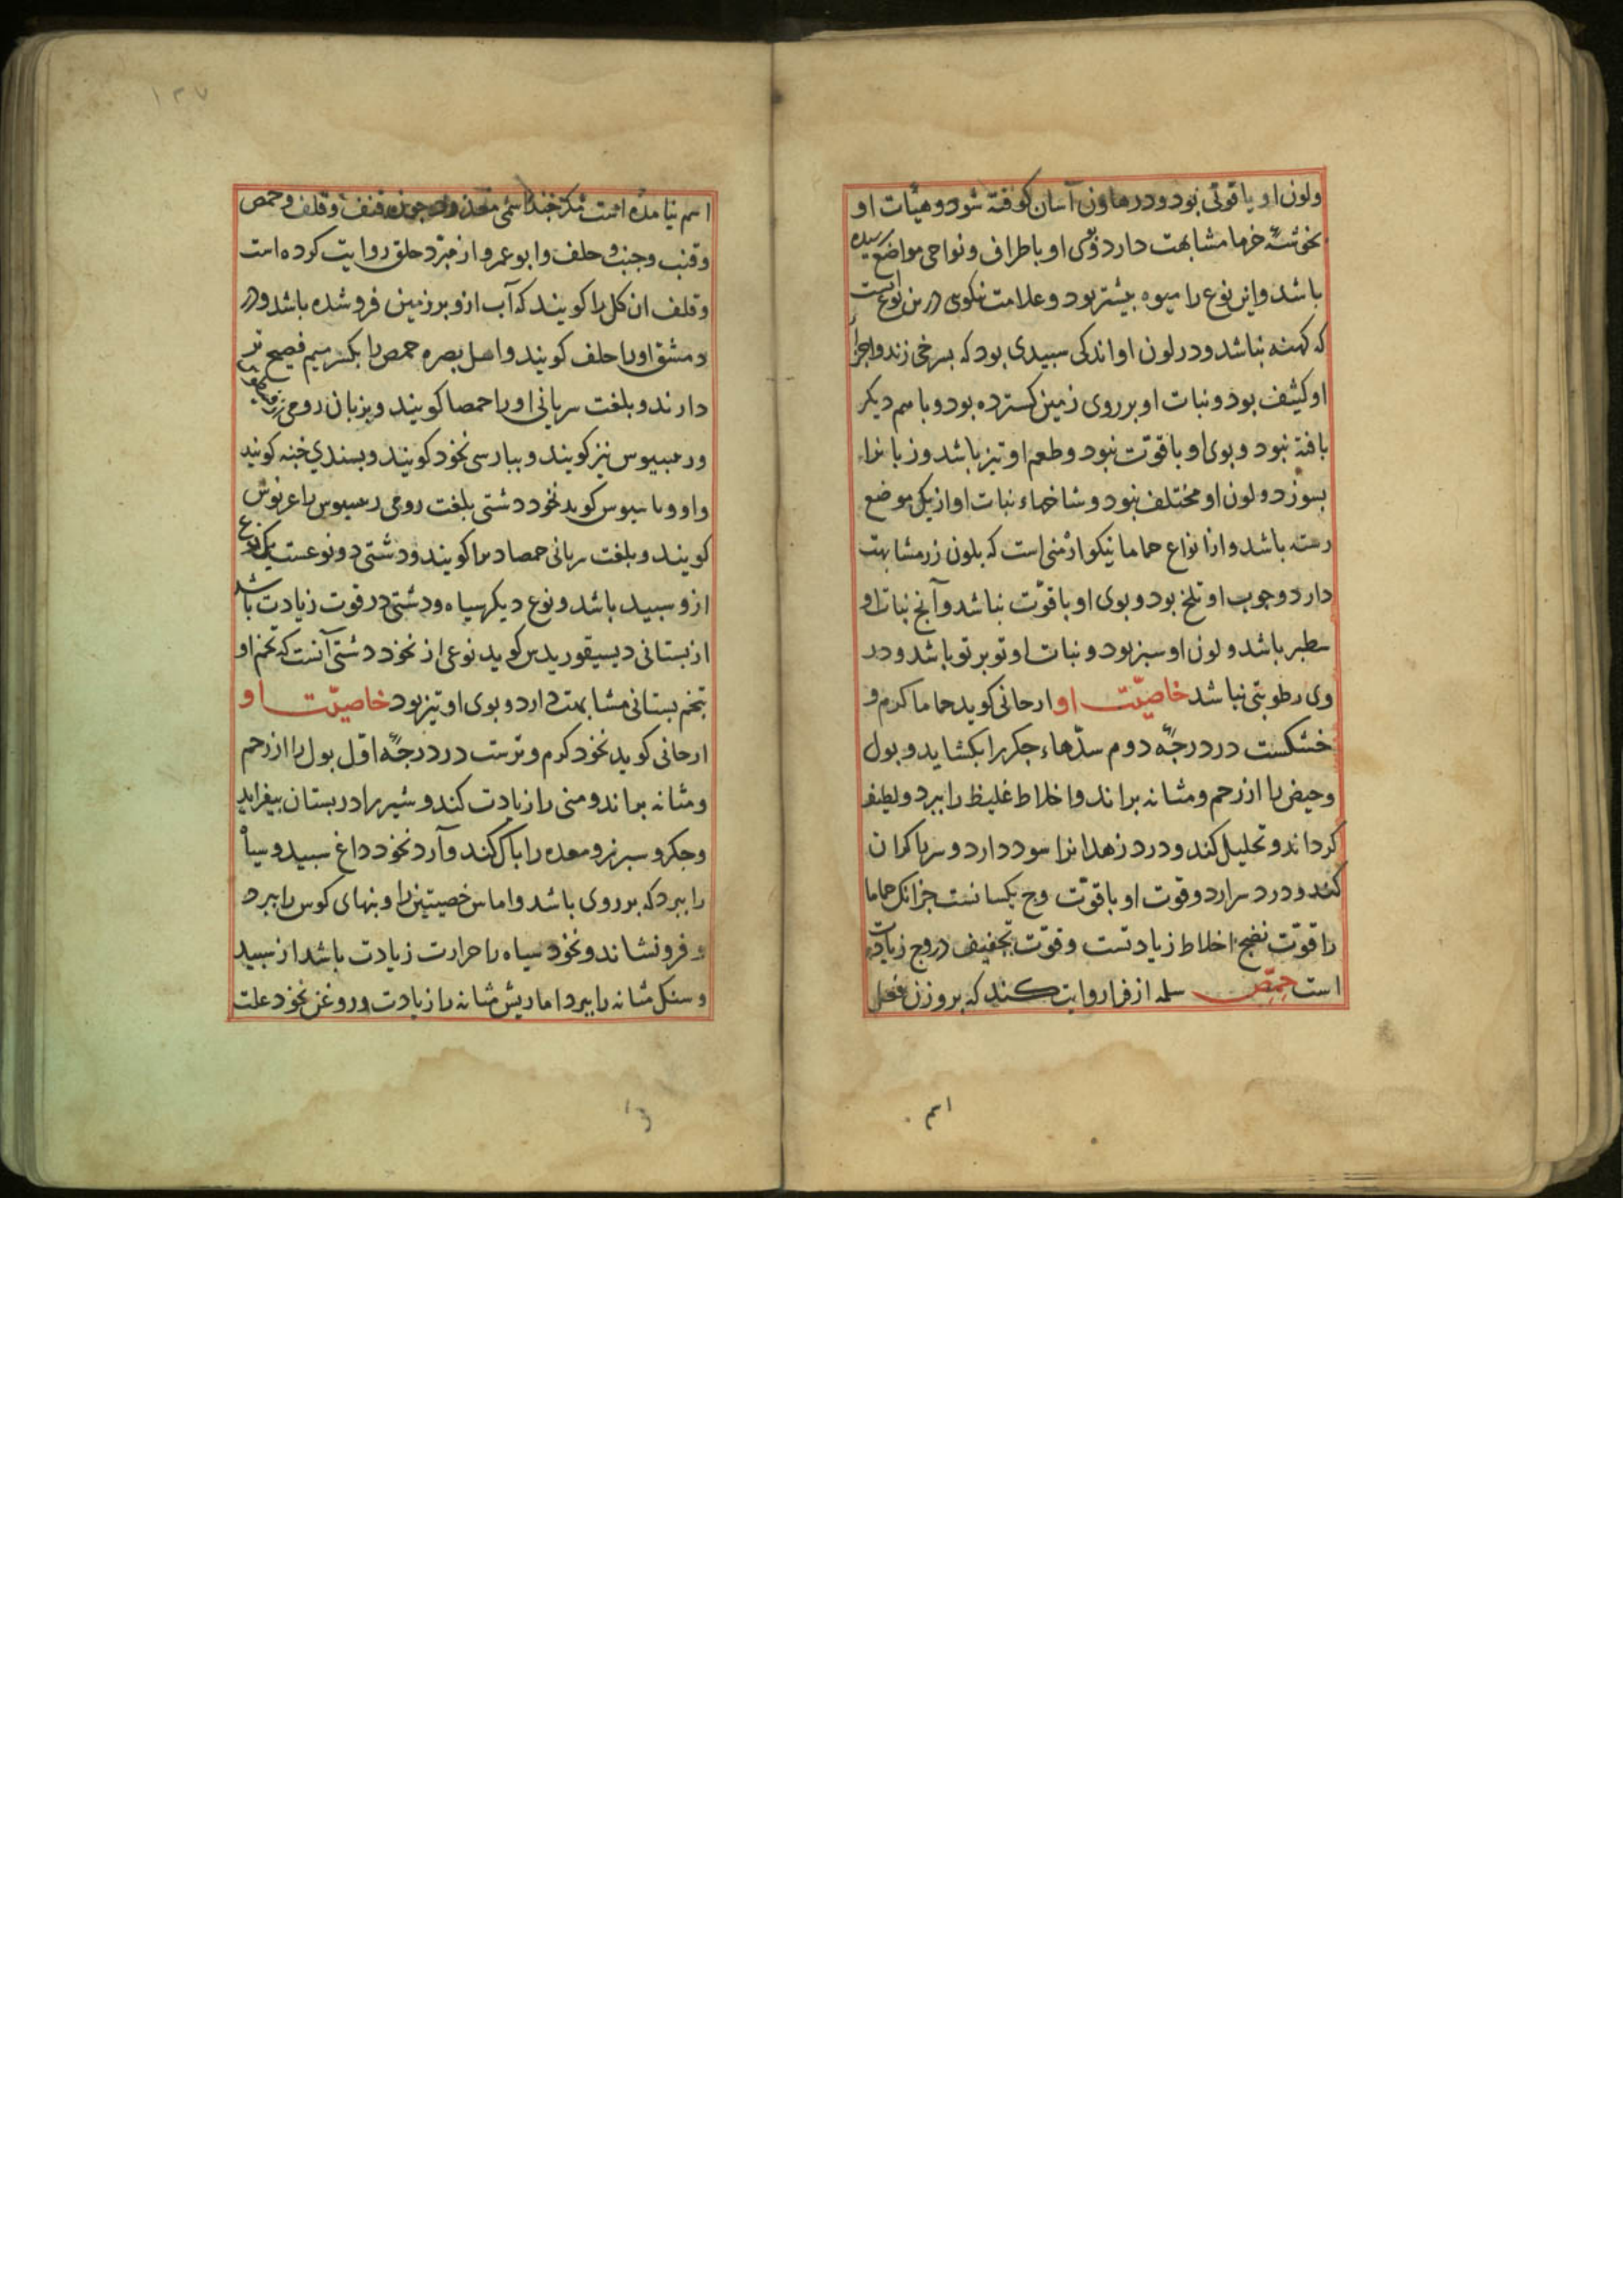 ولون او یاقوتی بود و در هاون آسان کوفته شود و هیأت او
بخوشهٔ خرما مشابهت دارد و بوی او باطراف و نواحی مواضع رسیده
باشد و این نوع را میوه بیشتر بود و علامت نیکوی درین نوع آنست
که کهنه نباشد و در لون او اندکی سبیدی بود که بسرخی زند و اجزاٴ
او کثیف بود و نبات او بر روی زمین کسترده بود و باسم دیکر
بافته نبود و بوی او با قوّت نبود و طعم او تیز باشد و زبانرا
بسوزد و لون او مختلف نبود و شاخهاء نبات او از یک موضع
رسته باشد و از انواع حماما نیکو ارمنی است که بلون زر مشابهت
دارد و چوب او تلخ بود و بوی او با قوّت نباشد و آنج نبات او
سطبر باشد و لون او سبز بود و نبات او تو بر تو باشد و در
وی رطوبتی نباشد خاصیّت او ارجانی کوید حماما کرم و
خشکست در درجهٔ دوم سدّهاء جکر را بکشاید و بول
و حیض را از رحم و مثانه براند و اخلاط غلیظ را ببرد و لطیف
کرداند و تحلیل کند و درد زهدانرا سود دارد و سر را کران
کند و درد سر ارد و قوت او با قوّت وج یکسانست جز انک حماما
را قوّت نضج اخلاط زیادتست و قوّت تجفیف در وج زیادت
است حِمّص سلمه از فرا روایت کند که بر وزن فعل
اسم
۱۲۷
اسم نیامده است مکر چند اسمی قنف و قلف و حمص
و قنب و جنب و حلف و ابو عمرو از مبرّد حلق روایت کرده است
و قلف ان کل را کویند که آب ازو بر زمین فرو شده باشد و در
دمشق او را حلف کویند و اهل بصره حمص را بکسر میم فصیح تر
دارند و بلغت سریانی او را حمصا کویند و بزبان رومی
نیز کویند و ببارسی نخود کویند و بسندی کویند
کوید نخود دشتی بلغت رومی
کویند و بلغت سریانی حمصا دبرا کویند و دشتی دو نوعست یک نوع
ازو سبید باشد و نوع دیکر سیاه و دشتی در قوت زیادت باشد
از بستانی دیسیقوریدس کوید نوعی از نخود دشتی آنست که تخم او
بتخم بستانی مشابهت دارد و بوی او تیز بود خاصیّت او
ارجانی کوید نخود کرم و ترست در درجهٔ اوّل بول را از رحم
و مثانه براند و منی را زیادت کند و شیر را در بستان بیفزاید
و جکر و سبرز و معده را باک کند و آرد نخود داغ سبید و سیاٴ
را ببرد که بر روی باشد و اماس خصیتین را و بنهای کوش را ببرد
و فرو نشاند و نخود سیاه را حرارت زیادت باشد از سبید
و سنک مثانه را ببرد اما ریش مثانه را زیادت و روغن نخود علت